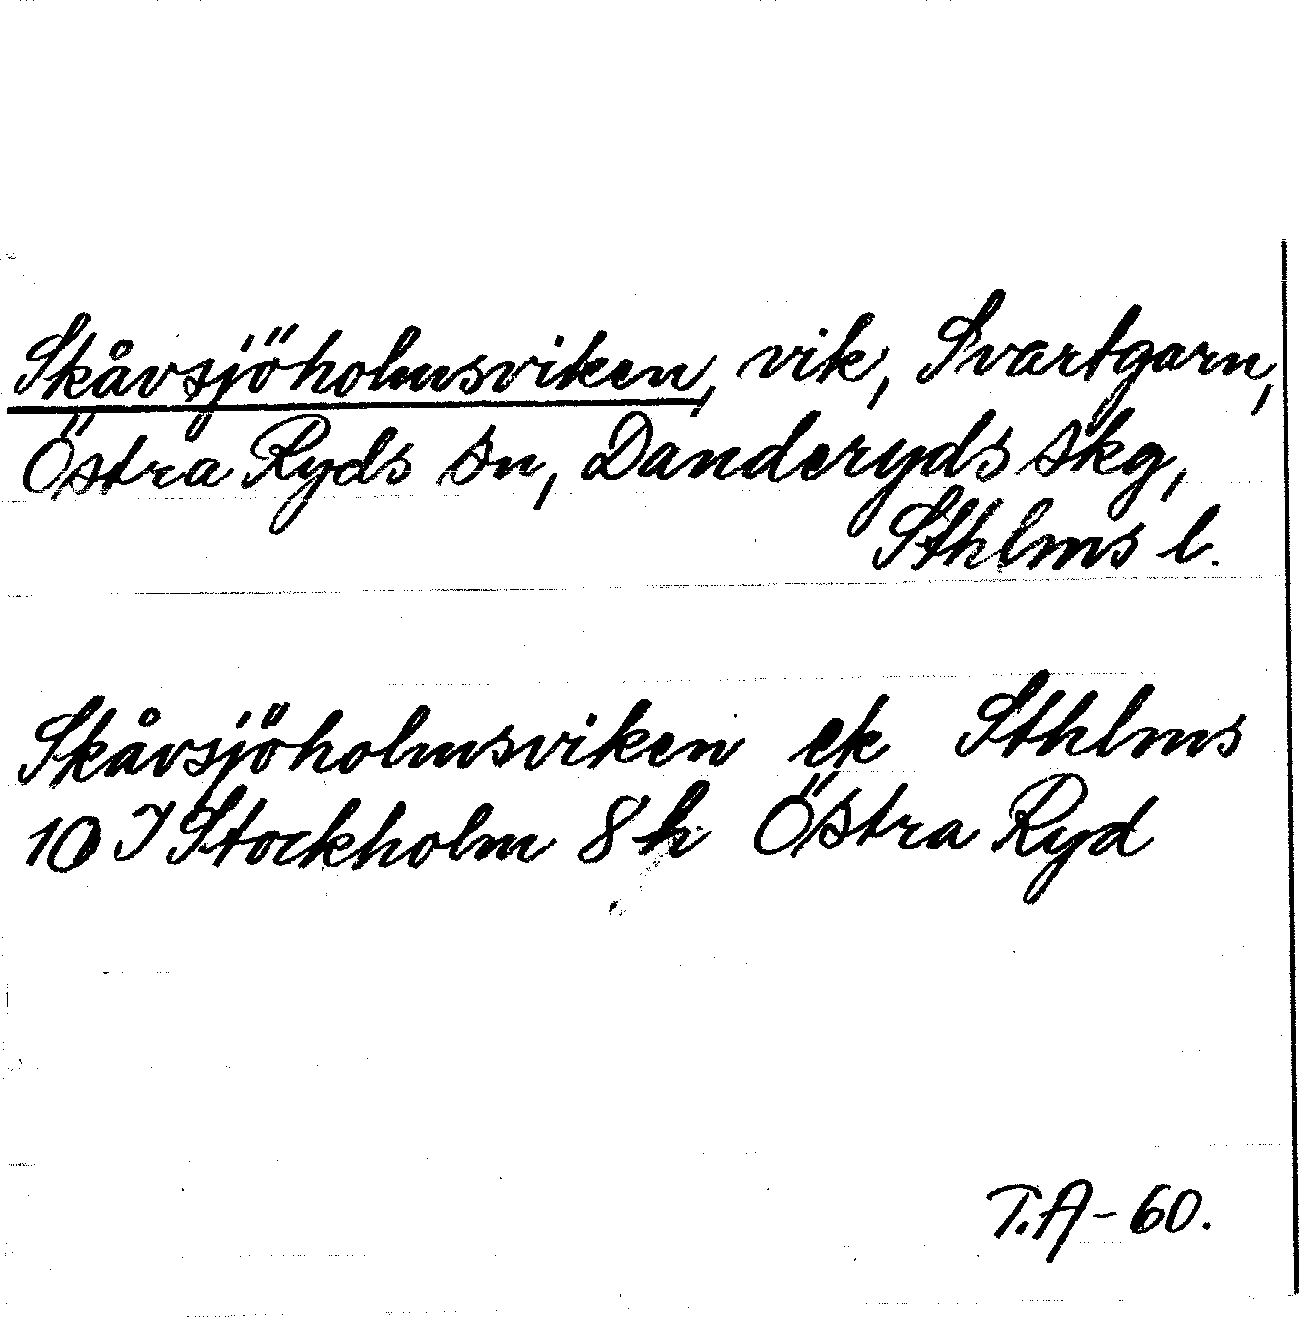 Skåvsjöholmsviken, vik, Svartgarn,
Östra Ryds sn, Danderyds skg,
Sthlms l.
Skåvsjöholmsviken ek Sthlms
10 I Stockholm 8 h Östra Ryd
T.A-60.